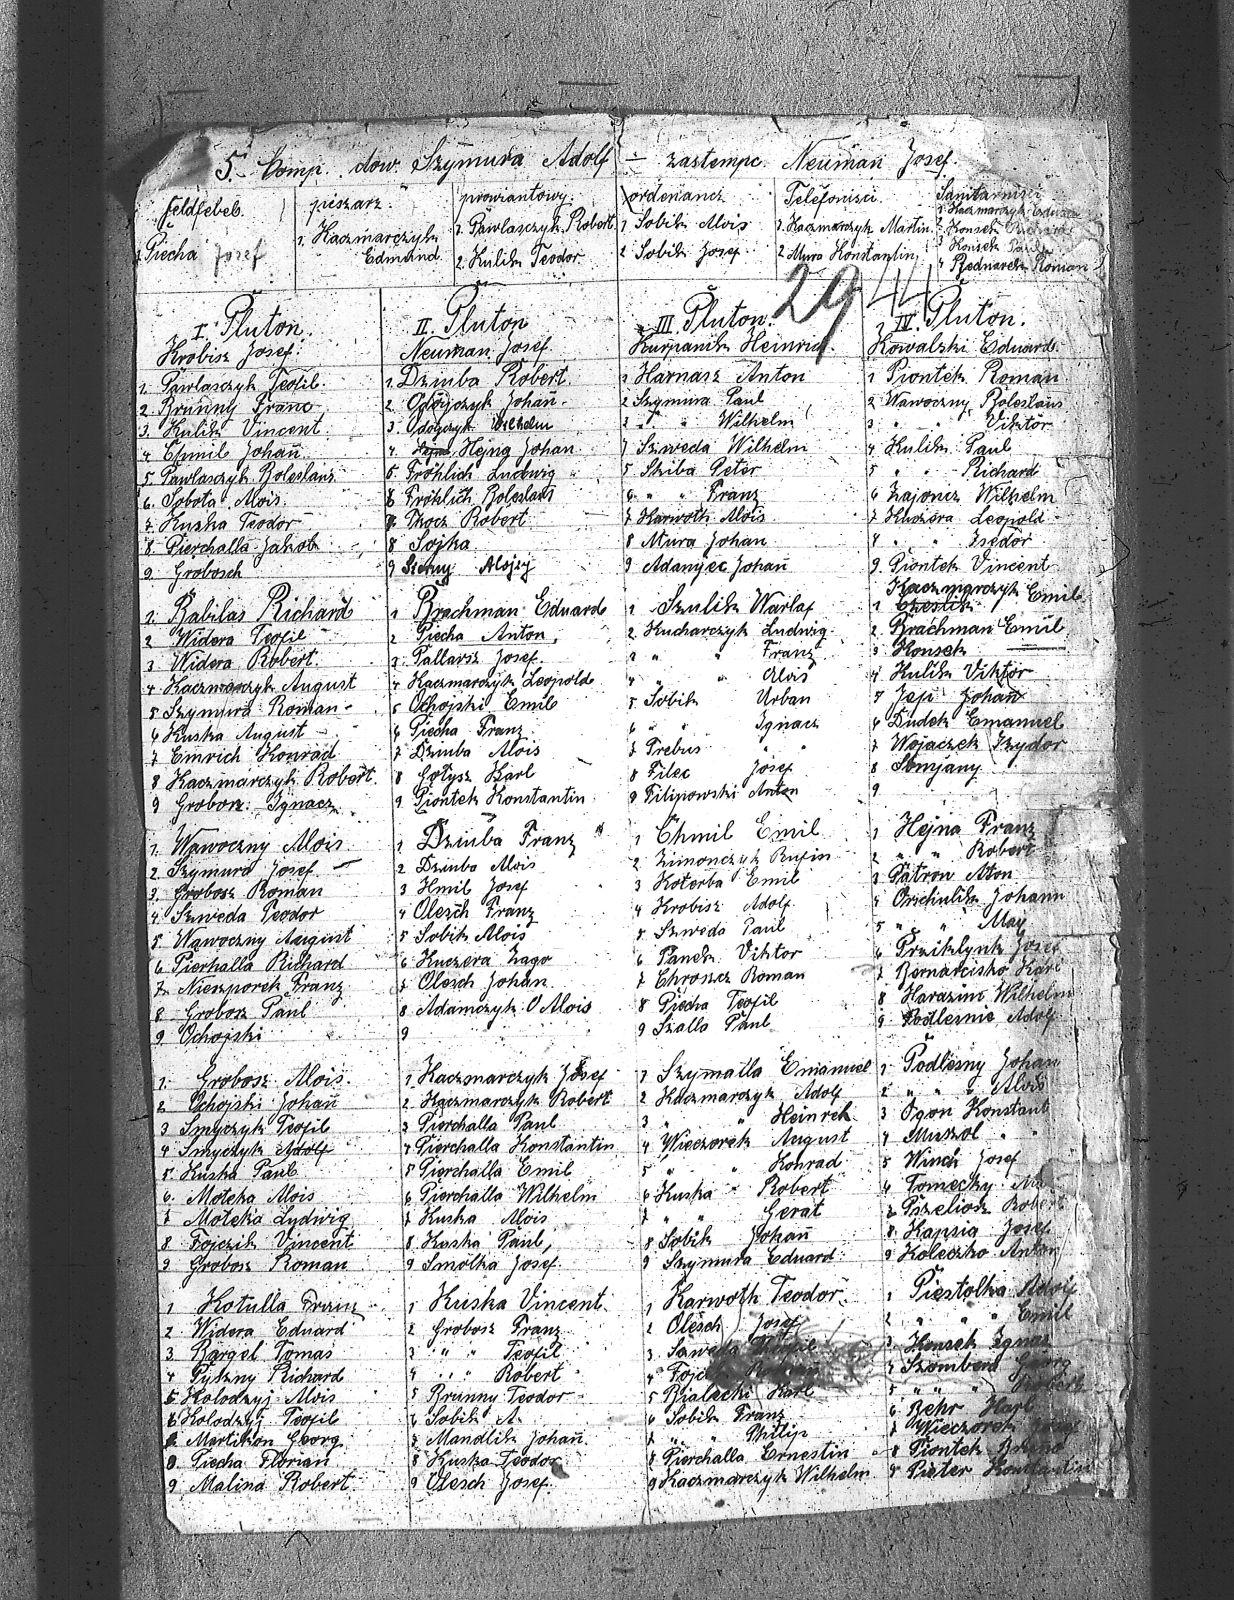 5. Komp. dow. Szymura Adolf — zastempc. Neuman Josef.
feldfebel.
1 Piecha Josef
piszarz.
1. Kaczmarczyk
Edmund
prowiantowy.
1. Pawlasczyk Robert
2. Kulik Teodor
ordenancz
1 Sobik Alois
2 Sobik Josef
Telefonisci
1. Kaczmarczyk Martin
2 Mura Konstantin
Sanitarnisci
1 Kaczmarczyk Eduard
2 Konsek Richard
3 Konsek Paul
4 Bednarek Roman
29 44
I. Pluton.
Krobisz Josef.
1. Pawlasczyk Teofil.
2 Brunny Franc
3. Kulik Vincent
4 Chmil Johan
5. Pawlasczyk Boleslaus
6. Sobota Alois
7 Kuska Teodor
8 Pierchalla Jakob
9. Grobosch
1. Babilas Richard
2 Widera Teofil
3 Widera Robert
4 Kaczmarczyk August
5 Szymura Roman
6 Kuska August
7 Emrich Konrad
8 Kaczmarczyk Robert
9 Grobosz Ignacz
1. Wawoczny Alois
2 Szymura Josef
3. Grobosz Roman
4 Szweda Teodor
5 Wawoczny August
6 Pierhalla Richard
7. Nieszporek Franz
8 Grobosz Paul
9 Ochojski
1. Grobosz Alois.
2 Ochojski Johan
3 Smyczyk Teofil
4 Smyczyk Adolf
5. Kuska Paul
6. Moteka Alois
7 Moteka Ludwig
8 Fojczik Vincent
9 Grobosz Roman
1 Kotulla Franz
2 Widera Eduard
3. Bargel Tomas
4 Pytzny Richard
5 Kolodzyj Alois
6 Kolodzyj Teofil
7 Martikon Georg
8 Piecha Florian
9 Malina Robert.
II Pluton
Neuman Josef
1. Dziuba Robert
2 Odojczyk Johan.
3. Odojczyk Wilhelm
4. Hejng Johan
5 Fröhlich Ludwig
6 Fröhlich Boleslaus
7. Tkocz Robert
8 Sojka
9 Szeruy Alojzy
1 Brachman Eduard
2 Piecha Anton,
3. Pallarsz Josef
4 Kaczmarczyk Leopold
5 Ochojski Emil
6 Piecha Franz
7 Dziuba Alois
8 Gotysz Karl
9 Piontek Konstantin
1 Dziuba Franz
2 Dziuba Alois
3 Hmil Josef
4 Olesch Franz
5 Sobik Alois
6 Kuczera Zago
7 Olesch Johan
8 Adamczyk O Alois
9
1 Kaczmarczyk Josef
2 Kaczmarczyk Robert
3 Pierchalla Paul
4 Pierchalla Konstantin
5 Pierchalla Emil
6 Pierchalla Wilhelm
7 Kuska Alois
8 Kuska Paul,
9 Smolka Josef.
1 Kuska Vincent.
2 Grobosz Franz
3 " " Teofil
4 " " Robert
5 Brunny Teodor
6 Sobik A.
7 Mandlik Johan.
8 Kuska Teodor
9 Olesch Josef.
III Pluton.
Kurpanik Heinrich
1 Harnasz Anton
2 Szymura Paul
3 " " Wilhelm
4 Szweda Wilhelm
5 Skiba Peter
6 " " Franz
7 Karwoth Alois
8 Mura Johan
9 Adamjec Johan
1 Szulik Warlaf
2. Kucharczyk Ludwig
3 " " Franz
4 " " Alois
5 Sobik Urban
6 " " Ignacz
7 Frebus " "
8 Filec Josef
9 Filipowski Anton
1 Chmil Emil
2 Zimonczyk Rufin
3 Koterba Emil
4 Krobisz Adolf
5 Szweda Paul
6 Panek Viktor
7 Chroszcz Roman
8 Piecha Teofil
9 Szalla Paul
1 Szymalla Emanuel
2 Kaczmarczyk Adolf
3 " " Heinrch
4 Wieczorek August
5 " " Konrad
6 Kuska " Robert
7 " " Gerat
8 Sobik Johan
9 Szymura Eduard
1 Karwoth Teodor
2 Olesch Josef
3. Szweda
4 Fojcik
5 Bialecki Karl
6 Sobik Franz
7 " " Philip
8 Pierchalla Ernestin
9 Kaczmarczyk Wilhelm
IV. Pluton.
Kowalski Eduard.
1 Piontek Roman
2 Wawoczny Boleslaus
3 " " Viktor
4 Kulik Paul
5 " " Richard
6 Zajoncz Wilhelm
7 Kuczera Leopold
8 " " Isedor
9. Piontek Vincent
Kaczmarczyk Emil
1
2. Brachman Emil
3 Konsek
4 Kulik Viktor
5 Jeji Johan
6 Dudek Emanuel
7 Wojaczek Izydor
8 Somjany
9
1 Hejna Franz
2 " " Robert
3 Patron Aton
4 Orichulik Johann
5 " "
6 Prziklynk Josef
7 Bernatcisko Karl
8 Harazim Wilhelm
9 Podlesnie Adolf
1 Podlesny Johan
2 " " Alois
3 Ogon Konstant
4 Muszol " "
5 Winch Josef
6 Tomecky
7 Pszeliorz Robert
8 Kapsia Josef
9 Koleczko Anton
1 Piestolka Adolf
2 " " Emil
3 Konsek Ignac
4 Szombera Georg
5 " " Herbert
6 Behr Karl
7 Wieczorek
8 Piontek
9 Pieter Konstantin